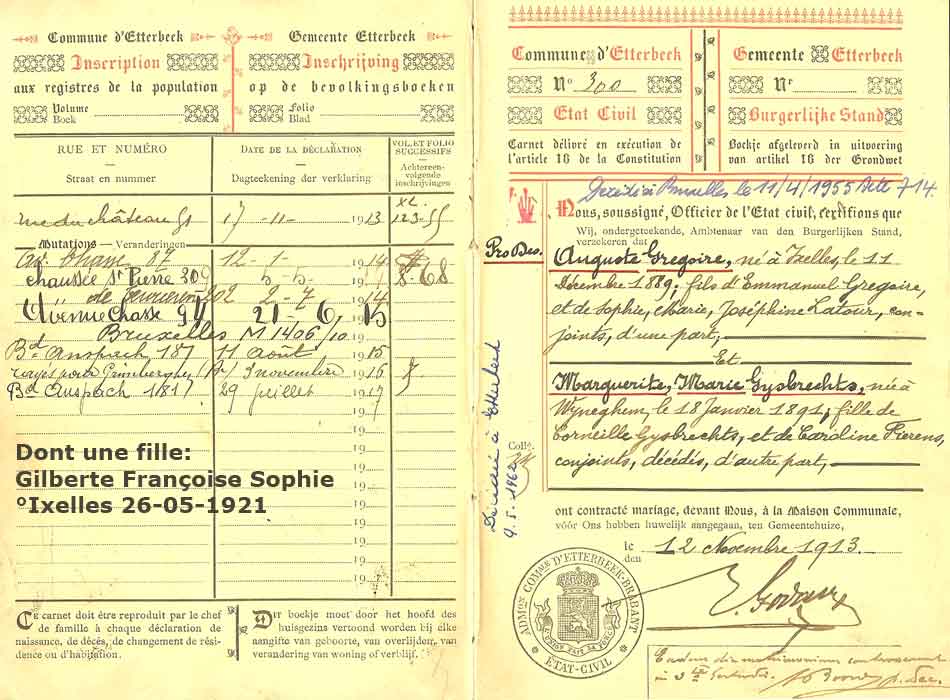 Commune d'Etterbeek
Inscription
aux registres de la population
Volume
Boek
Gemeente Etterbeek
Inschrijving
op de bevolkingsboeken
Folio
Blad
RUE ET NUMÉRO
Straat en nummer
DATE DE LA DÉCLARATION
Dagteekening der verklaring
VOL. ET FOLIO
SUCCESSIFS
Achtereen-
volgende
inschrijvingen
rue du château 51 17 -11- 1913
Mutations — Veranderingen
87 12 - 1 - 1914
chaussée St Pierre 8-68
202 2 - 7 1914
Avenue Chasse 21 - 6, 15
Bruxelles M 1406/10
Bd Anspach 187 11 août 1915
3 novembre 1916
Bd Anspach 29 juillet 1917
19
19
19
19
19
19
19
19
Dont une fille:
Gilberte Françoise Sophie
°Ixelles 26-05-1921
Ce carnet doit être reproduit par le chef
de famille à chaque déclaration de
naissance, de décès, de changement de rési-
dence ou d'habitation.
Dit boekje moet door het hoofd des
huisgezins vertoond worden bij elke
aangifte van geboorte, van overlijden, van
verandering van woning of verblijf.
Commune d'Etterbeek
No 300
Etat Civil
Carnet délivré en exécution de
l'article 16 de la Constitution
Gemeente Etterbeek
Nr
Burgerlijke Stand
Boekje afgeleverd in uitvoering
van artikel 16 der Grondwet
Décédé à Bruxelles le 11/4/1955 Acte 714.
Nous, soussigné, Officier de l'Etat civil, certifions que
Wij, ondergeteekende, Ambtenaar van den Burgerlijken Stand,
verzekeren dat
Pro Deo.
Auguste Gregoire, né à Ixelles, le 11
Décembre 1889, fils d'Emmanuel Gregoire,
et de Sophie, Marie, Joséphine Latour, con-
joints, d'une part,
Et
Marguerite, Marie Gysbrechts, née à
Wyneghem, le 18 Janvier 1891, fille de
Corneille Gysbrechts, et de Caroline Fierens,
conjoints, décédés, d'autre part,
Collé
Décédée à Etterbeek
9.5.1962
ont contracté mariage, devant Nous, à la Maison Communale,
vóór Ons hebben huwelijk aangegaan, ten Gemeentehuize,
le
den
12 Novembre 1913.
ADMON COMMLE D'ETTERBEEK-BRABANT
ETAT-CIVIL